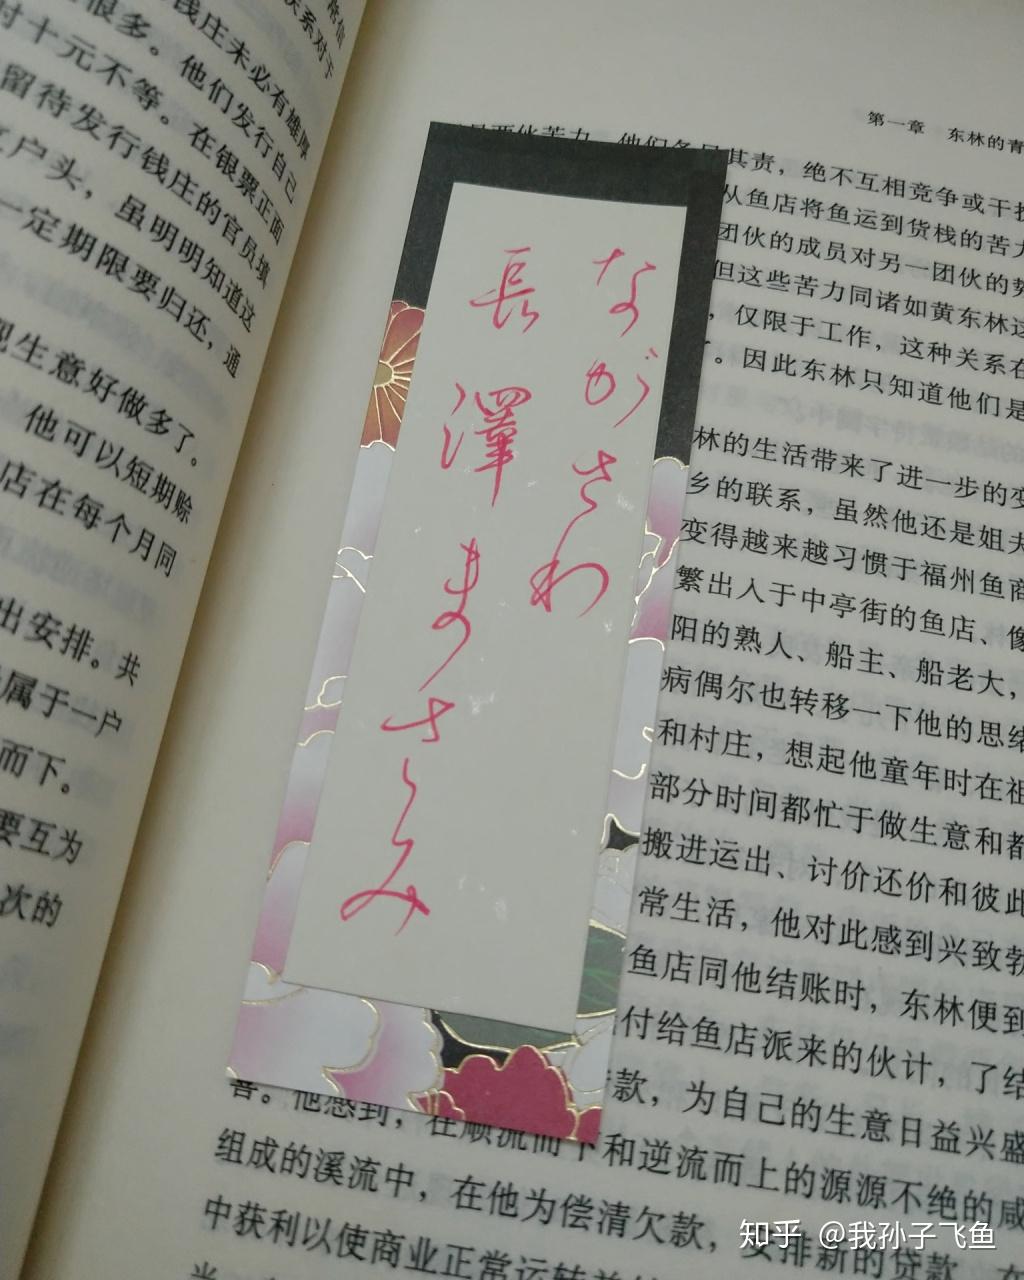 帝信
联系对于
钱庄未必有雄厚
很多。他们发行自己
时十元不等。在银票正面
留待发行钱庄的官员填
户头，虽明明知道这
一定期限要归还，通
现生意好做多了。
他可以短期赊
店在每个月同
出安排。共
属于一户
而下。
要互为
次的
第一章 东林的青
其责，绝不互相竞争或干扰
从鱼店将鱼运到货栈的苦力
团伙的成员对另一团伙的势
但这些苦力同诸如黄东林这
，仅限于工作，这种关系在
。因此东林只知道他们是
林的生活带来了进一步的变
乡的联系，虽然他还是姐夫
变得越来越习惯于福州鱼商
繁出入于中亭街的鱼店、像
阳的熟人、船主、船老大，
病偶尔也转移一下他的思绪
和村庄，想起他童年时在祖
部分时间都忙于做生意和都
搬进运出、讨价还价和彼此
常生活，他对此感到兴致勃
鱼店同他结账时，东林便到
付给鱼店派来的伙计，了结
款，为自己的生意日益兴盛
善。他感到，在顺流而下和逆流而上的源源不绝的咸
组成的溪流中，在他为偿清欠款，安排新的贷款，在
中获利以使商业正常运转
ながさわ
長澤まさみ
知乎 @我孙子飞鱼